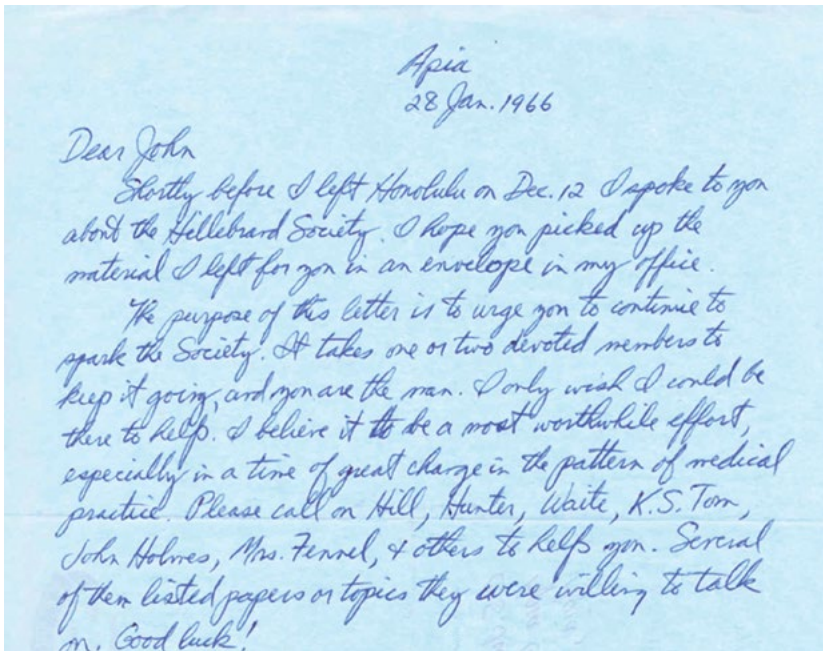 Apia
28 Jan. 1966
Dear John
Shortly before I left Honolulu on Dec. 12 I spoke to you
about the Hillebrand Society. I hope you picked up the
material I left for you in an envelope in my office.
The purpose of this letter is to urge you to continue to
spark the Society. It takes one or two devoted members to
keep it going, and you are the man. I only wish I could be
there to help. I believe it to be a most worthwhile effort,
especially in a time of great change in the pattern of medical
practice. Please call on Hill, Hunter, Waite, K.S. Tom,
John Holmes, Mrs. Fennel, & others to help you. Several
of them listed papers or topics they were willing to talk
on. Good luck!